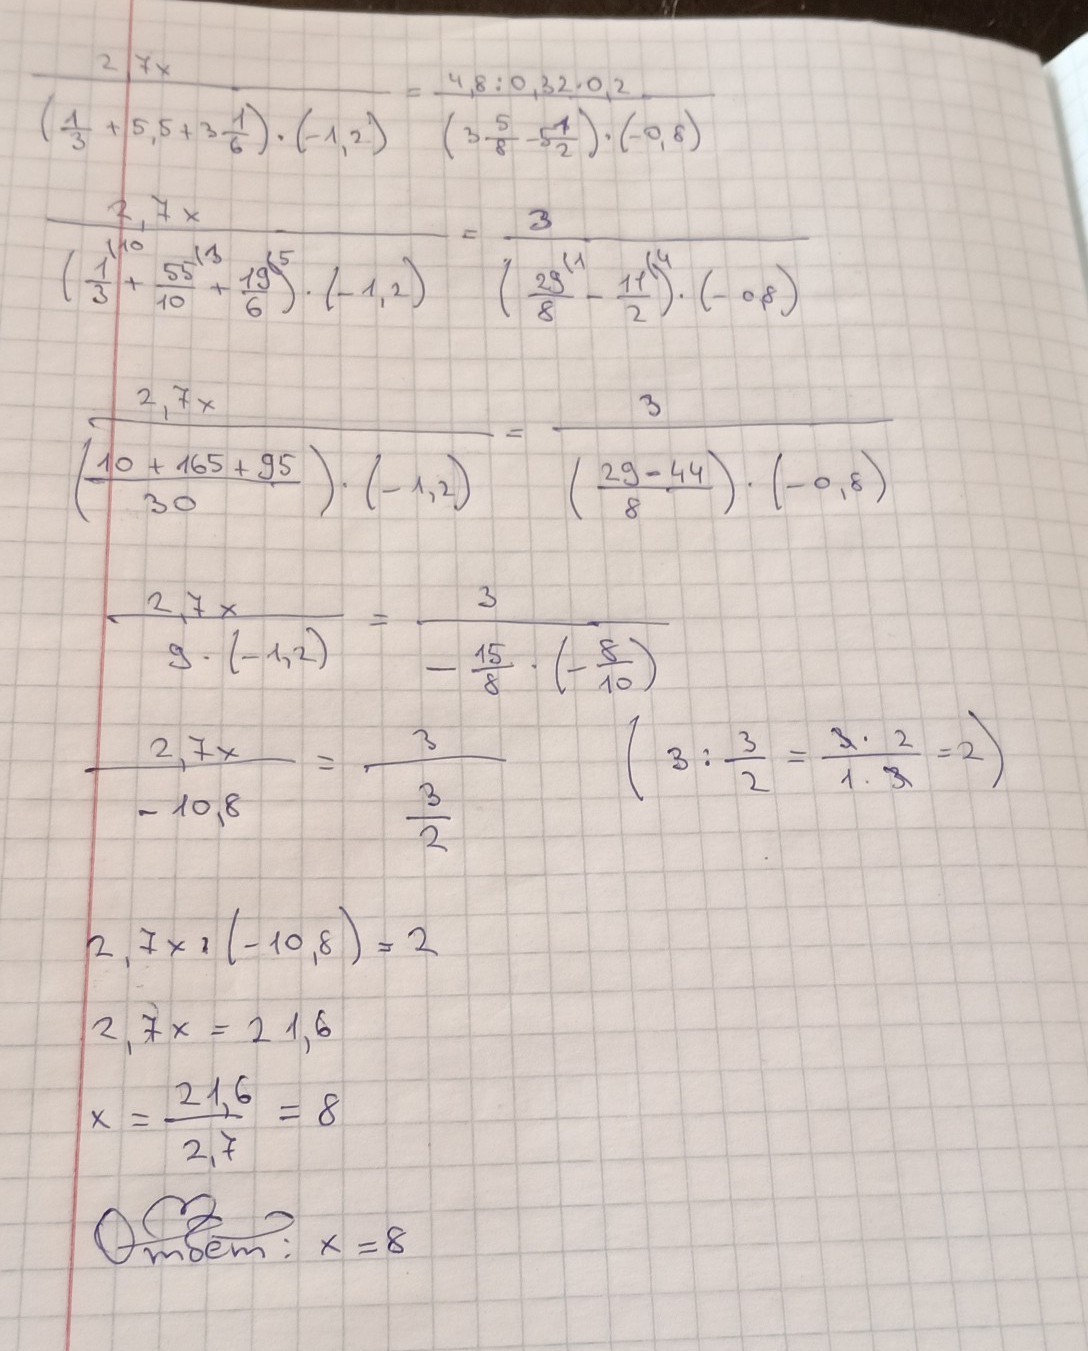 2,7x / ((1/3 + 5,5 + 3 1/6) · (-1,2)) = 4,8 : 0,32 · 0,2 / ((3 5/8 - 5 1/2) · (-0,8))
2,7x / ((1/3 (10 + 55/10 (3 + 19/6 (5) · (-1,2)) = 3 / ((29/8 (1 - 11/2 (4) · (-0,8))
2,7x / (((10 + 165 + 95)/30) · (-1,2)) = 3 / (((29 - 44)/8) · (-0,8))
2,7x / (9 · (-1,2)) = 3 / (-15/8 · (-8/10))
2,7x / -10,8 = 3 / (3/2) (3 : 3/2 = 3 · 2 / 1 · 3 = 2)
2,7x : (-10,8) = 2
2,7x = 21,6
x = 21,6 / 2,7 = 8
Ответ: x = 8